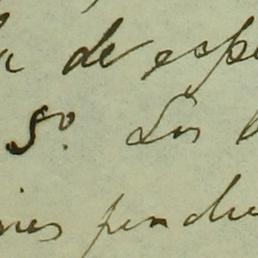 a de espe
5º. Los
nes pendie